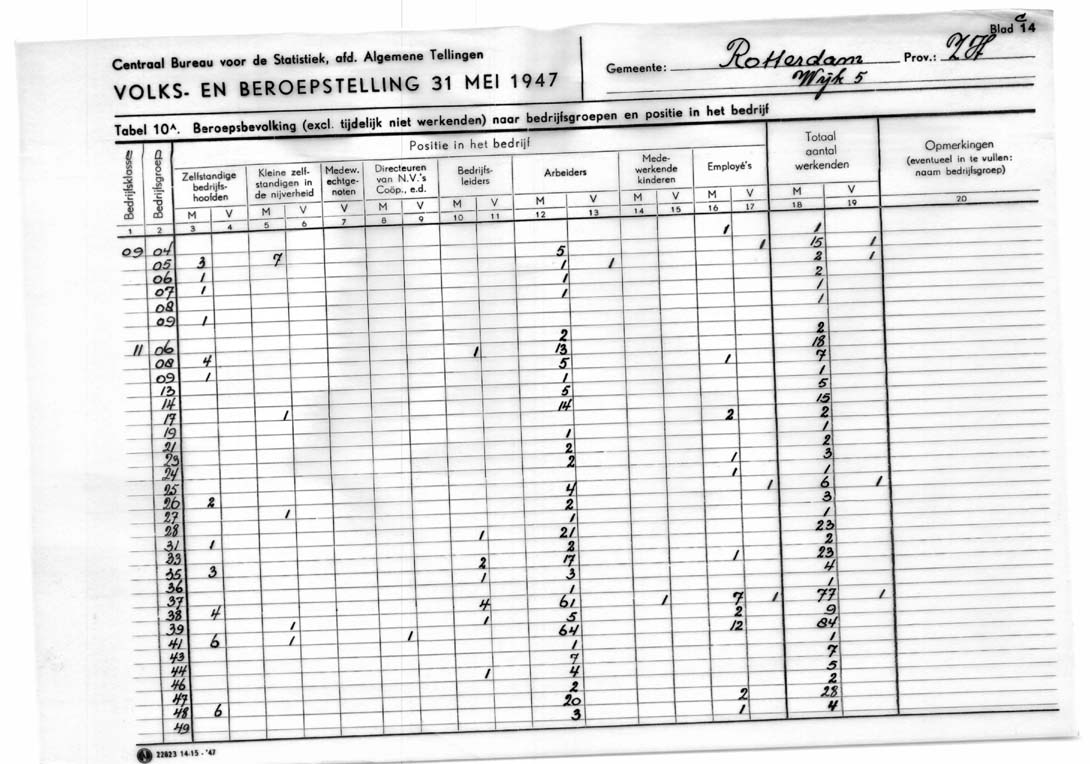 Blad C 14
Centraal Bureau voor de Statistiek, afd. Algemene Tellingen
VOLKS- EN BEROEPSTELLING 31 MEI 1947
Gemeente: Rotterdam Prov.: ZH
Wijk 5
Tabel 10A. Beroepsbevolking (excl. tijdelijk niet werkenden) naar bedrijfsgroepen en positie in het bedrijf
Bedrijfsklasse Bedrijfsgroep Positie in het bedrijf Totaal aantal werkenden Opmerkingen (eventueel in te vullen: naam bedrijfsgroep)
Zelfstandige bedrijfshoofden Kleine zelfstandigen in de nijverheid Medew. echtgenoten Directeuren van N.V.'s Coöp., e.d. Bedrijfsleiders Arbeiders Medewerkende kinderen Employé's
M V M V V M V M V M V M V M V M V
1 2 3 4 5 6 7 8 9 10 11 12 13 14 15 16 17 18 19 20
09 04 1 1
05 3 7 5 1 15 1
06 1 1 1 2 1
07 1 1 2
08 1 1
09 1 1
11 06 2 2
08 4 1 13 18
09 1 5 1 7
13 1 1
14 5 5
17 1 14 15
19 2 2
21 1 1
23 2 2
24 2 1 3
25 1 1
26 2 4 1 6 1
27 1 2 3
28 1 1
31 1 1 21 23
33 2 2
35 3 2 17 1 23
36 1 3 4
37 1 1
38 4 4 61 1 7 1 77 1
39 1 1 5 2 9
41 6 1 1 64 12 84
43 1 1
44 7 7
46 1 4 5
47 2 2
48 6 20 2 28
49 3 1 4
22823 14-15 - '47